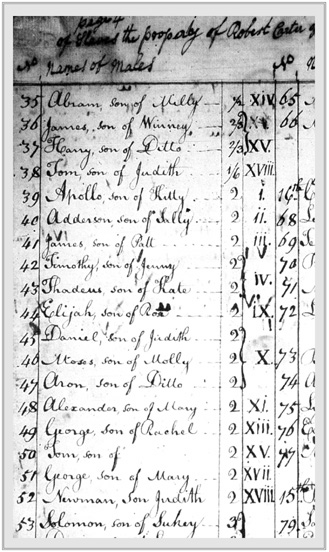 page 4
of Slaves the property of Robert Carter
No Names of Males No
35 Abram, son of Milly 1/2 XIV 65
36 James, son of Winney 2/3 XV. 66
37 Harry, son of Ditto 2/3
38 Tom, son of Judith 1/6 XVIII.
39 Apollo, son of Kitty 2 i.
40 Adderson son of 2 ii. 68
41 James, son of Patt 2 iii. 69
42 Timothy, son of Jenny 2 70
43 Thadeus, son of Kate 2 iv. 71
44 Elijah, son of Rose 2 IX. 72
45 Daniel, son of Judith 2
46 Moses, son of Molly 2 X. 73
47 Aron, son of Ditto 2 74
48 Alexander, son of Mary 2 Xi. 75
49 George, son of Rachel 2 XIII. 76
50 Tom, son of 2 XV. 77
51 George, son of Mary 2 XVII.
52 Newman, Son Judith 2 XVIII.
53 Solomon, son of Sukey 3 79